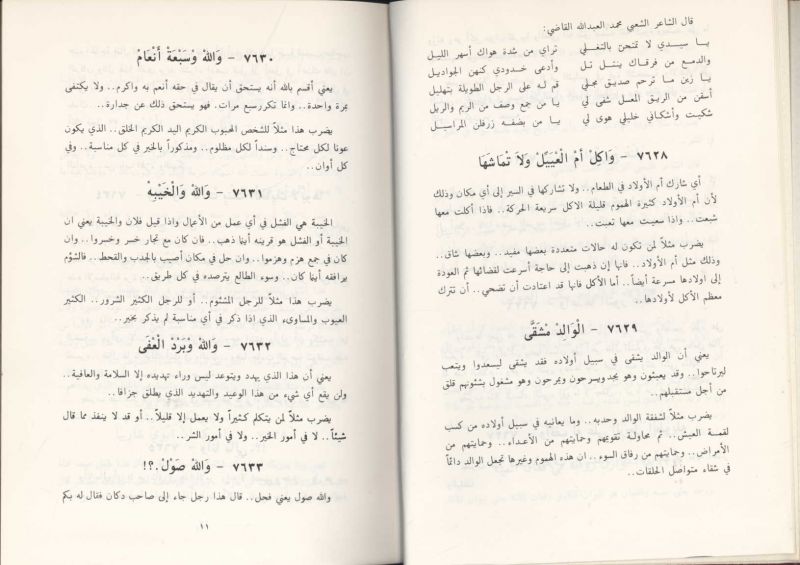 قال الشاعر الشعبي محمد العبدالله القاضي:
يا سيدي لا تمتحن بالتغلي تراي من شدة هواك أسهر الليل
والدمع من فرقاك ينثل تل وأدعى خدودي كنهن الجواديل
يا زين ما ترحم صديق مجلي قم له على الرجل الطويلة بتهليل
أسقن من الريق المعسل شفى لي يا من جمع وصف من الريم والريل
شكيت وأشكاني خليلي هوى لي يا من بضفه زرفلن المراسيل
٧٦٢٨ - وَاكِلْ أمْ الْعْيَيِّلْ وَلاَ تْمَاشَهَا
أي شارك أم الأولاد في الطعام.. ولا تشاركها في السير إلى أي مكان وذلك
لأن أم الأولاد كثيرة الهموم قليلة الاكل سريعة الحركة.. فاذا أكلت معها
شبعت.. واذا سعيت معها تعبت..
يضرب مثلاً لمن تكون له حالات متعددة بعضها مفيد.. وبعضها شاق..
وذلك مثل أم الأولاد.. فانها إن ذهبت إلى حاجة أسرعت لقضائها ثم العودة
إلى اولادها مسرعة أيضاً.. أما الأكل فانها قد اعتادت أن تضحي.. أن تترك
معظم الأكل لأولادها..
٧٦٢٩ - الْوَالِدْ مْشَقَّى
يعني أن الوالد يشقى في سبيل أولاده فقد يشقى ليسعدوا ويتعب
ليرتاحوا.. وقد يعبثون وهو يجد ويسرحون ويمرحون وهو مشغول بشئونهم قلق
من أجل مستقبلهم..
يضرب مثلاً لشفقة الوالد وحدبه.. وما يعانيه في سبيل أولاده من كسب
لقمة العيش.. ثم محاولة تقويمهم وحمايتهم من الأعداء.. وحمايتهم من
الأمراض.. وحمايتهم من رفاق السوء.. ان هذه الهموم وغيرها تجعل الوالد دائماً
في شقاء متواصل الحلقات..
٧٦٣٠ - وَاللهْ وْسَبْعَةْ أَنْعَامْ
يعني أقسم بالله أنه يستحق أن يقال في حقه أنعم به واكرم.. ولا يكتفى
بمرة واحدة.. وانما تكرر سبع مرات. فهو يستحق ذلك عن جدارة..
يضرب هذا مثلاً للشخص المحبوب الكريم اليد الكريم الخلق.. الذي يكون
عونا لكل محتاج.. وسنداً لكل مظلوم.. ومذكوراً بالخير في كل مناسبة.. وفي
كل أوان..
٧٦٣١ - وَاللهْ وَالْخَيْبِهْ
الخيبة هي الفشل في أي عمل من الأعمال واذا قيل فلان والخيبة يعني ان
الخيبة أو الفشل هو قرينه أينما ذهب.. فان كان مع تجار خسر وخسروا.. وان
كان في جمع هزم وهزموا.. وان حل في مكان أصيب بالجدب والقحط.. فالشؤم
يرافقه أينما كان.. وسوء الطالع يترصده في كل طريق..
يضرب هذا مثلاً للرجل المشئوم.. أو للرجل الكثير الشرور.. الكثير
العيوب والمساوىء الذي إذا ذكر في أي مناسبة لم يذكر بخير..
٧٦٣٢ - وَاللهْ وْبَرْدْ الْعَفَى
يعني أن هذا الذي يهدد ويتوعد ليس وراء تهديده إلا السلامة والعافية..
ولن يقع أي شيء من هذا الوعيد والتهديد الذي يطلق جزافا..
يضرب مثلاً لمن يتكلم كثيراً ولا يعمل إلا قليلاً.. أو قد لا ينفذ مما قال
شيئاً.. لا في أمور الخير.. ولا في أمور الشر..
٧٦٣٣ - وَاللهْ صَوْلْ.؟!
والله صول يعني فحل.. قال هذا رجل جاء إلى صاحب دكان فقال له بكم
١١